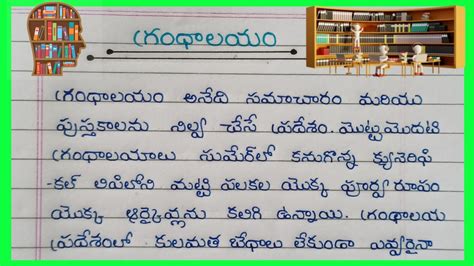 గ్రంథాలయం
గ్రంథాలయం అనేది సమాచారం మరియు
పుస్తకాలను నిల్వ చేసే ప్రదేశం. మొట్టమొదటి
గ్రంథాలయాలు సుమేర్‌లో కనుగొన్న క్యునెరిఫి
-కల్ లిపిలోని మట్టి పలకల యొక్క పూర్వ రూపం
యొక్క ఆర్కైవ్లను కలిగి ఉన్నాయి. గ్రంథాలయ
ప్రదేశంలో కులమత బేధాలు లేకుండా ఎవ్వరైనా